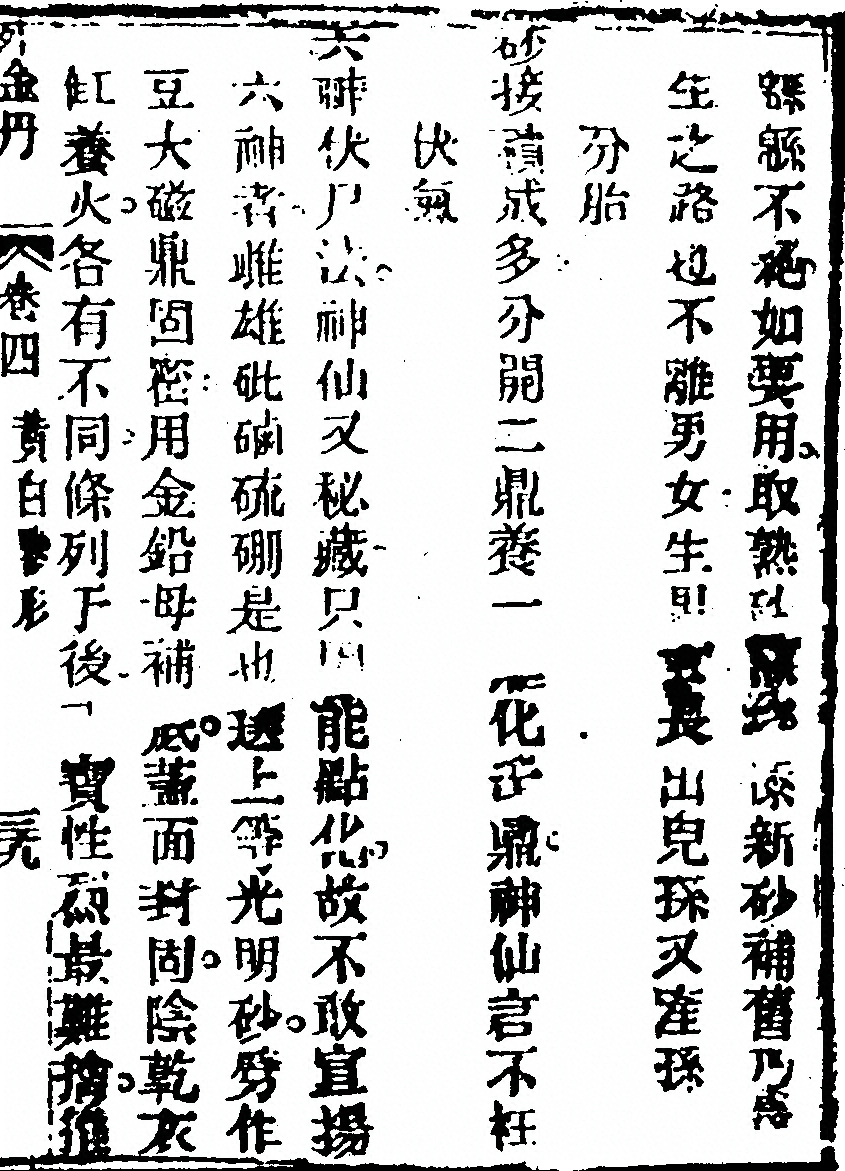 緜緜不絕如要用取熟砂 添新砂補舊乃為
生之路也不離男女生 長出兒孫又產孫
分胎
砂接積成多分開二鼎養一 化丕鼎神仙言不枉
伏氣
六神伏尸法神仙又秘藏只 能點化故不敢宣揚
六神者雌雄砒硇硫硼是也 選上等光明砂劈作
豆大磁鼎固密用金鉛母補 底蓋面封固陰乾灰
缸養火各有不同條列于後 寶性烈最難擒進
金丹 卷四 黃白 形 三九